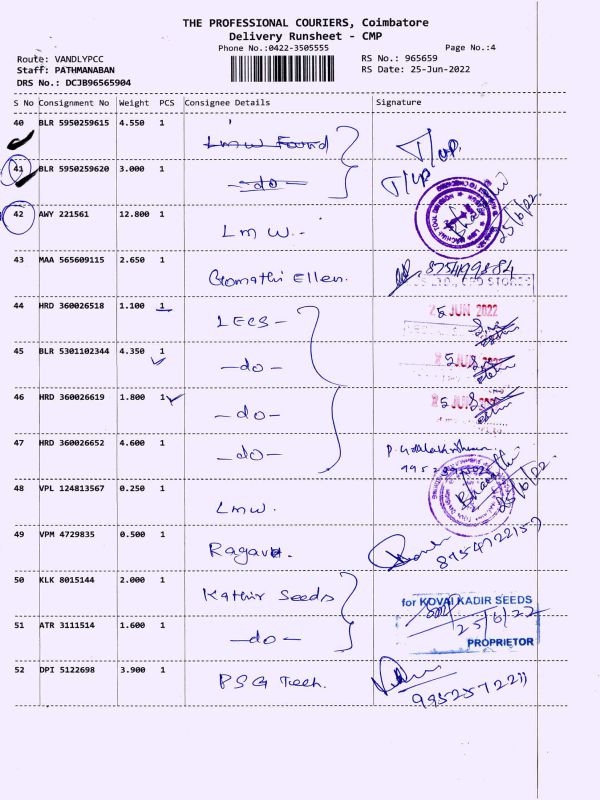 THE PROFESSIONAL COURIERS, Coimbatore
Delivery Runsheet - CMP
Phone No.:0422-3505555 Page No.:4
Route: VANDLYPCC RS No.: 965659
Staff: PATHMANABAN RS Date: 25-Jun-2022
DRS No.: DCJB96565904
S No Consignment No Weight PCS Consignee Details Signature
40 BLR 5950259615 4.550 1 LMW Found T/up.
41 BLR 5950259620 3.000 1 -do- T/up
42 AWY 221561 12.800 1 LMW. 25/6/22
43 MAA 565609115 2.650 1 Gomathi Ellen.
44 HRD 360026518 1.100 1 LECS - 25 JUN 2022
45 BLR 5301102344 4.350 1 -do- 25 JUN
46 HRD 360026619 1.800 1 -do- 25 JUN
47 HRD 360026652 4.600 1 -do-
48 VPL 124813567 0.250 1 LMW. 25/6/22
49 VPM 4729835 0.500 1 Ragavt. 8754722157
50 KLK 8015144 2.000 1 Kathir Seeds for KOVAI KADIR SEEDS
51 ATR 3111514 1.600 1 -do- 25/6/22
PROPRIETOR
52 DPI 5122698 3.900 1 PSG Tech. 9952572211